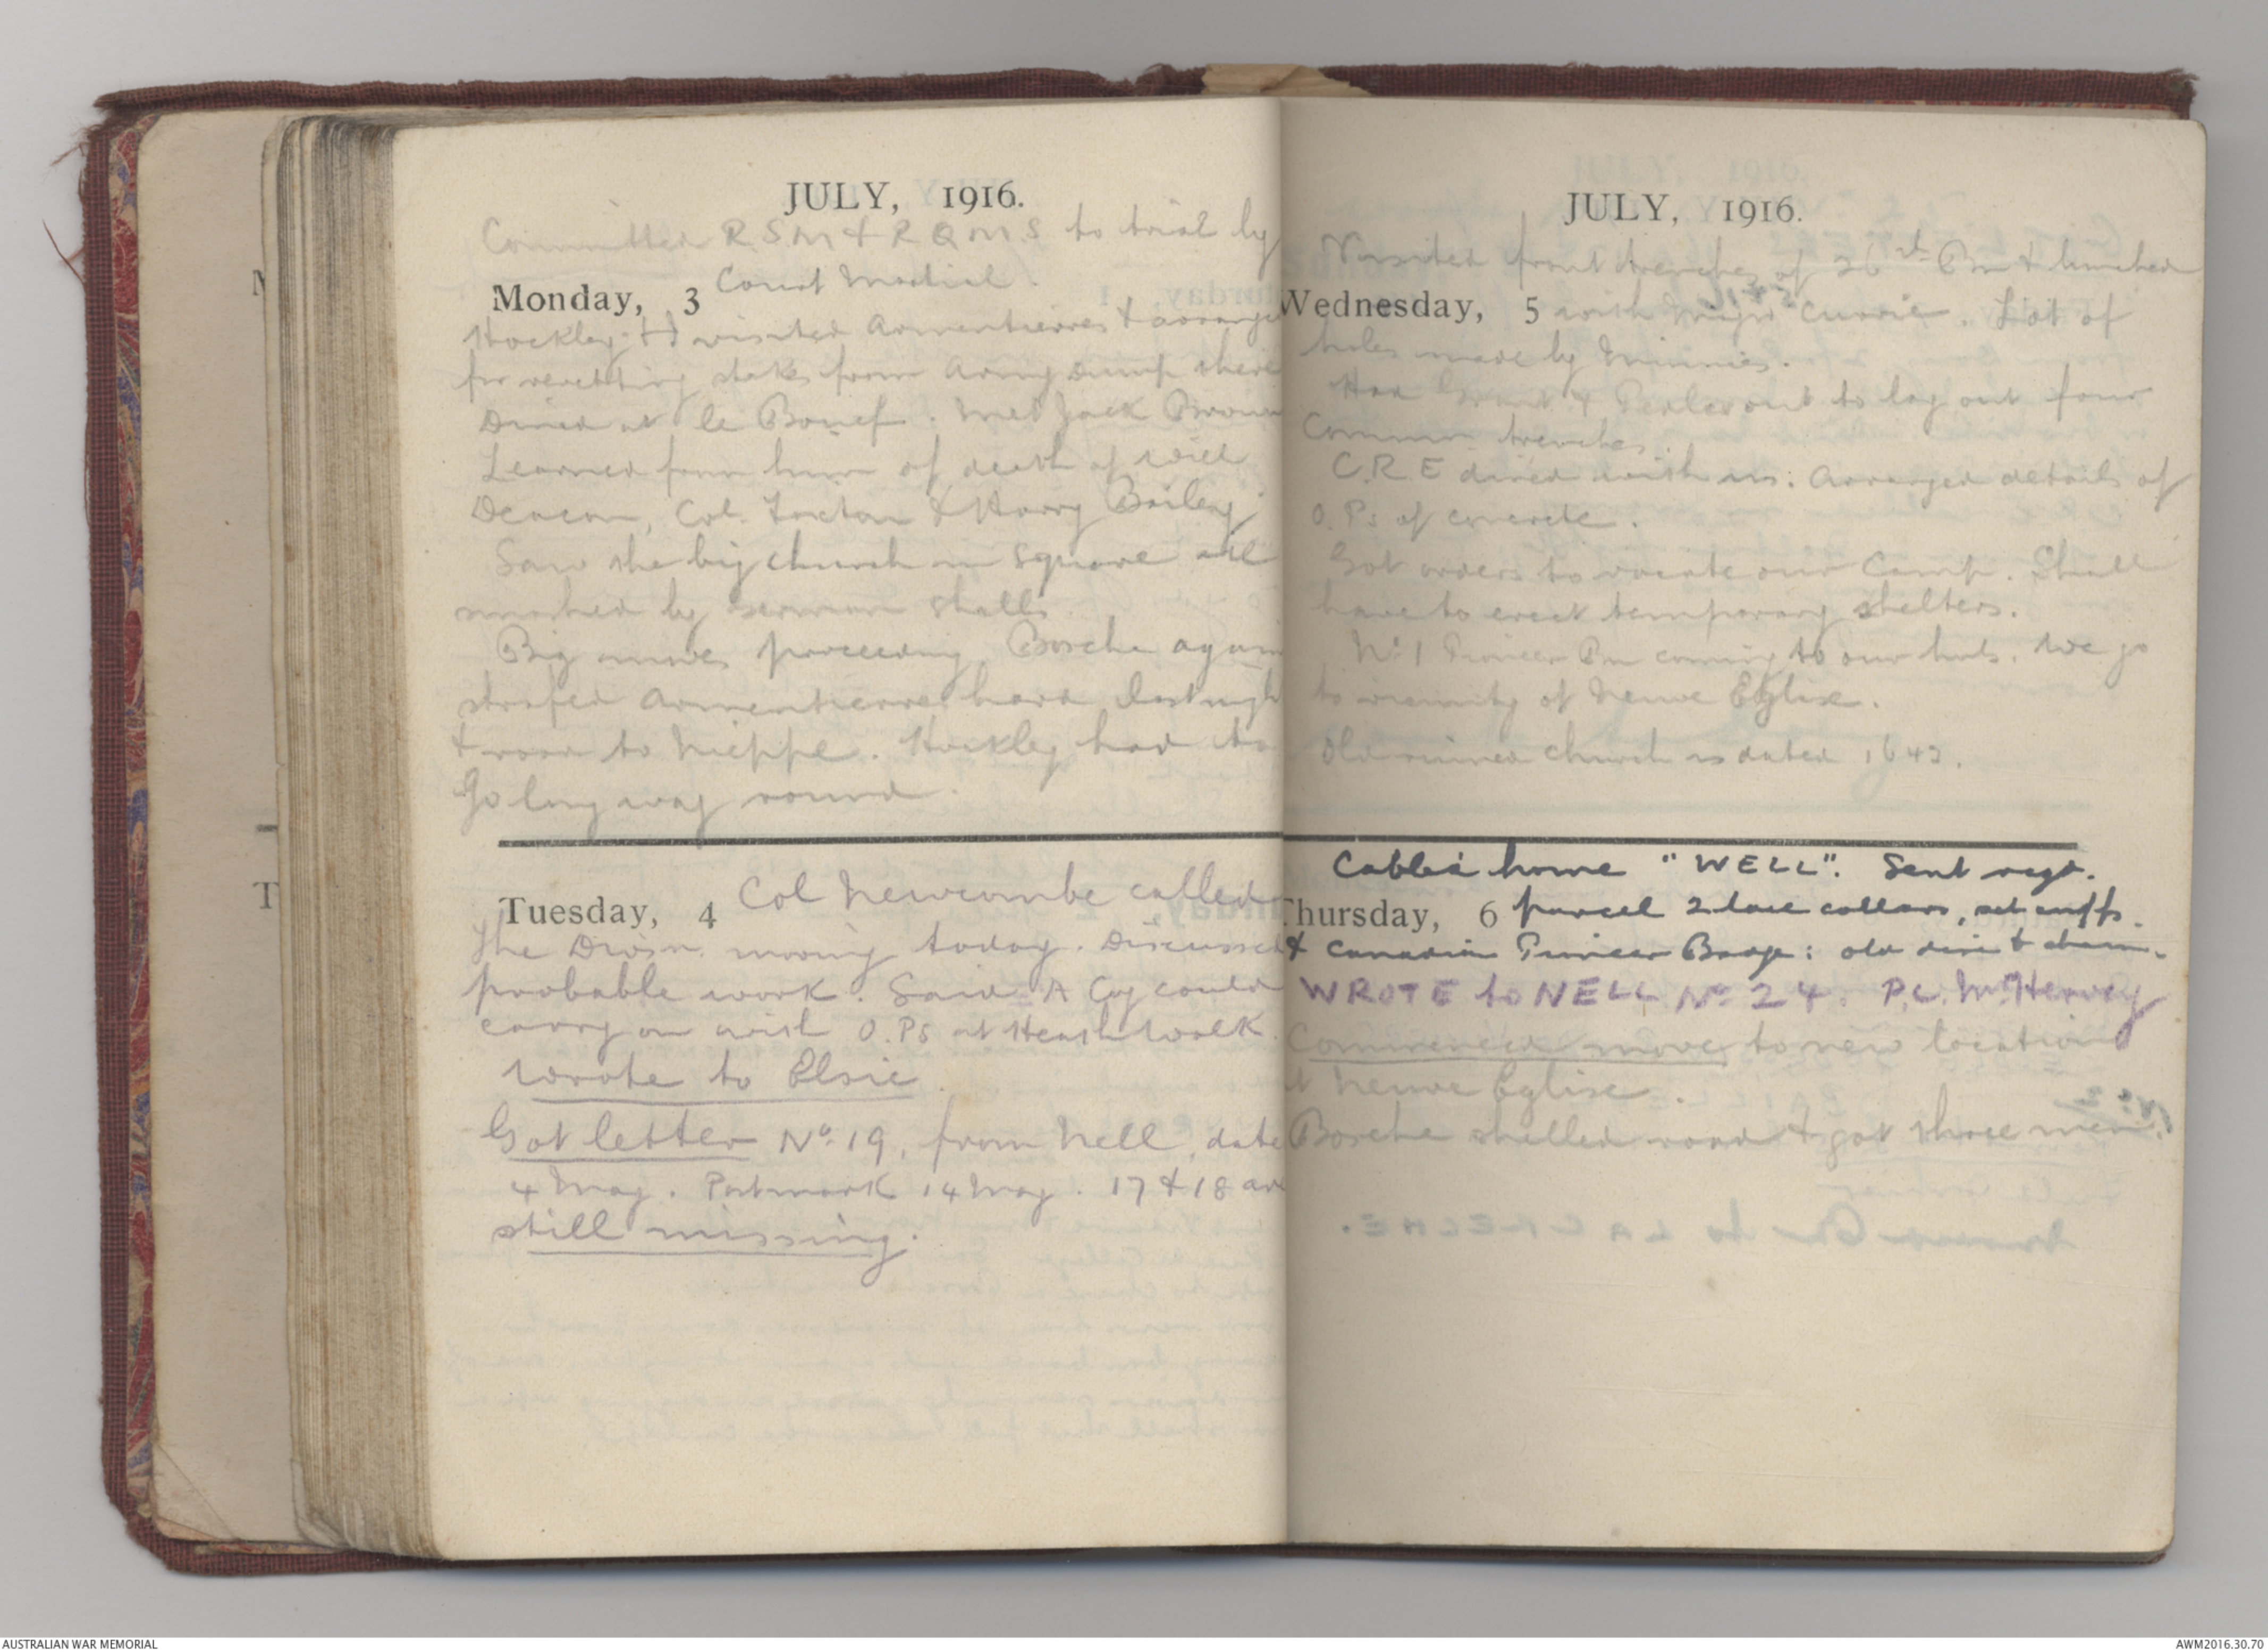 JULY, 1916.
Committed R S M & R Q M S to trial by
Monday, 3 Court Martial.
Hockley & I visited Armentieres & arranged
for revetting stakes from Army Dump there
Dined at le Boeuf. Met Jack Brown
Learned from him of death of Will
Deacon, Col. & Harry Bailey
Saw the big church in square all
smashed by German shells.
Big moves proceeding Bosche again
strafed Armentieres hard last night
& road to Nieppe. Hockley had to
go long way round.
Tuesday, 4 Col Newcombe called
The Divsn. moving today. Discussed
probable work. Said A Coy could
carry on with O.Ps at Heath Walk.
Wrote to Elsie.
Got letter No. 19, from Nell, date
4 May. Postmark 14 May. 17 & 18 are
still missing.
JULY, 1916.
Visited front trenches of 26th Bn & lunched
Wednesday, 5 with Major Currie. Lot of
holes made by Minnies.
Had & out to lay out four
Common trenches.
C.R.E dined with us: Arranged details of
O.Ps of concrete.
Got orders to vacate our Camp. Shall
have to erect temporary shelters.
No 1 Pioneer Bn coming to our huts. We go
to vicinity of Neuve Eglise.
Old ruined church is dated 1643.
Cabled home "WELL". Sent regd.
Thursday, 6 parcel 2 lace collars, set cuffs.
& Canadian Pioneer Badge: old disc & chain.
WROTE to NELL No 24. P.C. McHenry
Commenced move to new location
at Neuve Eglise.
Bosche shelled road & got three men.